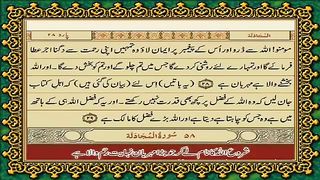 المجادلة پارہ ٢٨
مومنو! اللہ سے ڈرو اور اُس کے پیغمبر پر ایمان لاؤ وہ تمہیں اپنی رحمت سے دگنا اجر عطا
فرمائے گا اور تمہارے لئے روشنی کردے گا جس میں تم چلو گے اور تم کو بخش دے گا۔ اور اللہ
بخشنے والا ہے مہربان ہے ٢٨ (یہ باتیں) اس لئے (بیان کی گئی ہیں) کہ اہل کتاب
جان لیں کہ وہ اللہ کے فضل پر کچھ بھی قدرت نہیں رکھتے۔ اور یہ کہ فضل اللہ ہی کے ہاتھ
میں ہے جس کو چاہتا ہے دیتا ہے اور اللہ بڑے فضل کا مالک ہے ٢٩
٥٨ سورة المجادلة
شروع اللہ کا نام لے کر جو بڑا مہربان نہایت رحم والا ہے